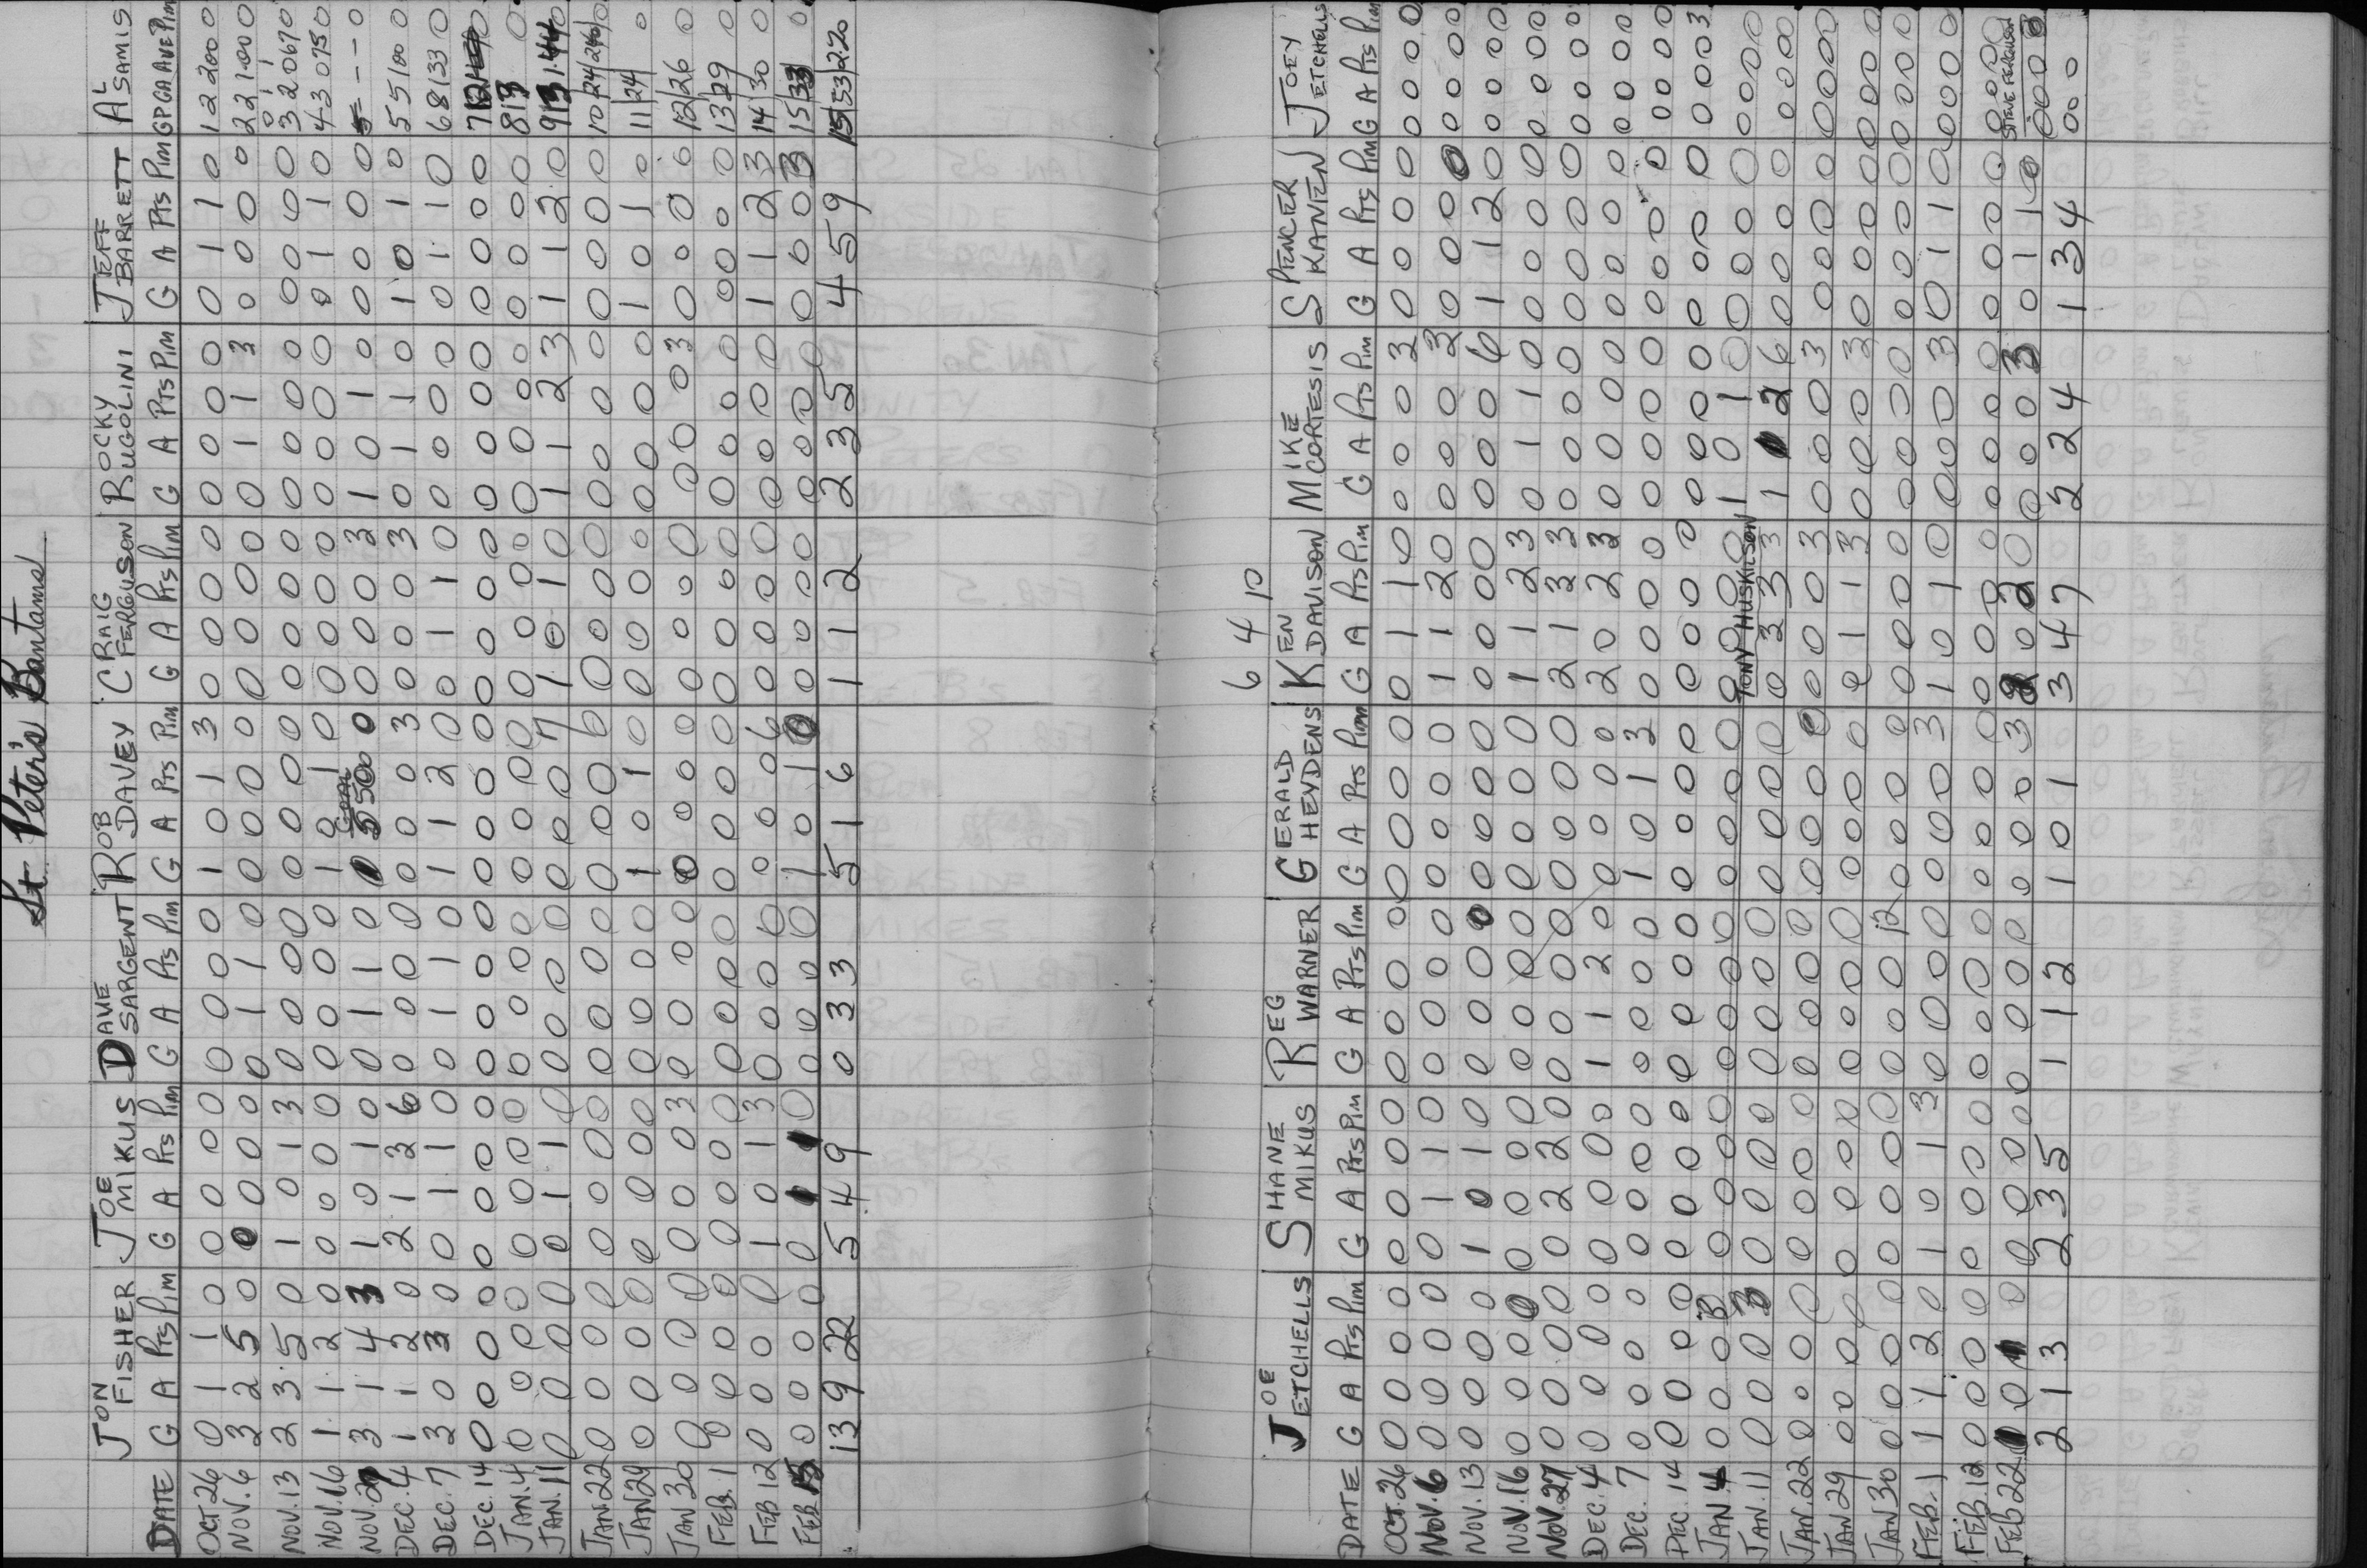 St. Peter's Bantams
DATE JON FISHER JOE MIKUS DAVE SARGENT ROB DAVEY CRAIG FERGUSON ROCKY RUGOLINI JEFF BARRETT AL SAMIS
G A Pts Pim G A Pts Pim G A Pts Pim G A Pts Pim G A Pts Pim G A Pts Pim G A Pts Pim GP GA AVE Pim
OCT 26 0 1 1 0 0 0 0 0 0 0 0 0 1 0 1 3 0 0 0 0 0 0 0 0 0 1 1 0 1 2 2.00 0
NOV. 6 3 2 5 0 0 0 0 0 0 1 1 0 0 0 0 0 0 0 0 0 0 1 1 3 0 0 0 0 2 2 1.00 0
NOV. 13 2 3 5 0 1 0 1 3 0 0 0 0 0 0 0 0 0 0 0 0 0 0 0 0 0 0 0 0 3 2 0.67 0
NOV. 16 1 1 2 0 0 0 0 0 0 0 0 0 1 0 1 0 0 0 0 0 0 0 0 0 0 1 1 0 4 3 0.75 0
NOV. 27 3 1 4 3 1 0 1 0 0 1 1 0 GOAL 5 5.00 0 0 0 0 3 1 0 1 0 0 0 0 0 - - - 0
DEC. 4 1 1 2 0 2 1 3 6 0 0 0 0 0 0 0 3 0 0 0 3 0 1 1 0 1 0 1 0 5 5 1.00 0
DEC. 7 3 0 3 0 0 1 1 0 0 1 1 0 1 1 2 0 0 1 1 0 0 0 0 0 0 1 1 0 6 8 1.33 0
DEC. 14 0 0 0 0 0 0 0 0 0 0 0 0 0 0 0 0 0 0 0 0 0 0 0 0 0 0 0 0 7 12 0
JAN. 4 0 0 0 0 0 0 0 0 0 0 0 0 0 0 0 0 0 0 0 0 0 0 0 0 0 0 0 0 8 13 0
JAN. 11 0 0 0 0 0 1 1 0 0 0 0 0 0 0 0 7 1 0 1 0 1 1 2 3 1 1 2 0 9 13 1.44 0
JAN 22 0 0 0 0 0 0 0 0 0 0 0 0 0 0 0 0 0 0 0 0 0 0 0 0 0 0 0 0 10 24 2.40 0
JAN 29 0 0 0 0 0 0 0 0 0 0 0 0 1 0 1 0 0 0 0 0 0 0 0 0 1 0 1 0 11 24 0
JAN 30 0 0 0 0 0 0 0 3 0 0 0 0 0 0 0 0 0 0 0 0 0 0 0 3 0 0 0 0 12 26 0
FEB. 1 0 0 0 0 0 0 0 0 0 0 0 0 0 0 0 0 0 0 0 0 0 0 0 0 0 0 0 0 13 29 0
FEB 12 0 0 0 0 1 0 1 3 0 0 0 0 0 0 0 6 0 0 0 0 0 0 0 0 1 1 2 3 14 30 0
FEB 15 0 0 0 0 0 1 1 0 0 0 0 0 1 0 1 0 0 0 0 0 0 0 0 0 0 0 0 3 15 33 0
13 9 22 5 4 9 0 3 3 5 1 6 1 1 2 2 3 5 4 5 9 15 33 2.20
6 4 10
DATE JOE ETCHELLS SHANE MIKUS REG WARNER GERALD HEYDENS KEN DAVISON MIKE CORTESIS SPENCER SKANEN JOEY ETCHELLS
G A Pts Pim G A Pts Pim G A Pts Pim G A Pts Pim G A Pts Pim G A Pts Pim G A Pts Pim G A Pts Pim
OCT. 26 0 0 0 0 0 0 0 0 0 0 0 0 0 0 0 0 0 1 1 0 0 0 0 3 0 0 0 0 0 0 0 0
NOV. 6 0 0 0 0 0 1 1 0 0 0 0 0 0 0 0 0 1 1 2 0 0 0 0 3 0 0 0 0 0 0 0 0
NOV. 13 0 0 0 0 1 0 1 0 0 0 0 0 0 0 0 0 0 0 0 0 0 0 0 6 1 1 2 0 0 0 0 0
NOV. 16 0 0 0 0 0 0 0 0 0 0 0 0 0 0 0 0 1 1 2 3 0 1 1 0 0 0 0 0 0 0 0 0
NOV. 27 0 0 0 0 0 2 2 0 0 0 0 0 0 0 0 0 2 1 3 3 0 0 0 0 0 0 0 0 0 0 0 0
DEC. 4 0 0 0 0 0 0 0 0 1 1 2 0 0 0 0 0 2 0 2 3 0 0 0 0 0 0 0 0 0 0 0 0
DEC. 7 0 0 0 0 0 0 0 0 0 0 0 0 1 0 1 3 0 0 0 0 0 0 0 0 0 0 0 0 0 0 0 0
DEC. 14 0 0 0 0 0 0 0 0 0 0 0 0 0 0 0 0 0 0 0 0 0 0 0 0 0 0 0 0 0 0 0 3
JAN 4 0 0 0 3 0 0 0 0 0 0 0 0 0 0 0 0 0 0 0 0 1 0 1 0 0 0 0 0 0 0 0 0
TONY HUSKILSON
JAN. 11 0 0 0 3 0 0 0 0 0 0 0 0 0 0 0 0 0 3 3 3 1 1 2 6 0 0 0 0 0 0 0 0
JAN. 22 0 0 0 0 0 0 0 0 0 0 0 0 0 0 0 0 0 0 0 3 0 0 0 3 0 0 0 0 0 0 0 0
JAN 29 0 0 0 0 0 0 0 0 0 0 0 0 0 0 0 0 0 1 1 3 0 0 0 3 0 0 0 0 0 0 0 0
JAN 30 0 0 0 0 0 0 0 0 0 0 0 12 0 0 0 0 0 0 0 0 0 0 0 0 0 0 0 0 0 0 0 0
FEB. 1 1 1 2 0 1 0 1 3 0 0 0 0 0 0 0 3 1 0 1 0 0 0 0 3 0 1 1 0 0 0 0 0
FEB. 12 0 0 0 0 0 0 0 0 0 0 0 0 0 0 0 0 0 0 0 0 0 0 0 0 0 0 0 0 0 0 0 0
STEVE FERGUSON
FEB 22 1 0 1 0 0 0 0 0 0 0 0 0 0 0 0 3 2 0 2 0 0 0 0 3 0 1 1 0 0 0 0 0
2 1 3 2 3 5 1 1 2 1 0 1 3 4 7 2 2 4 1 3 4 0 0 0